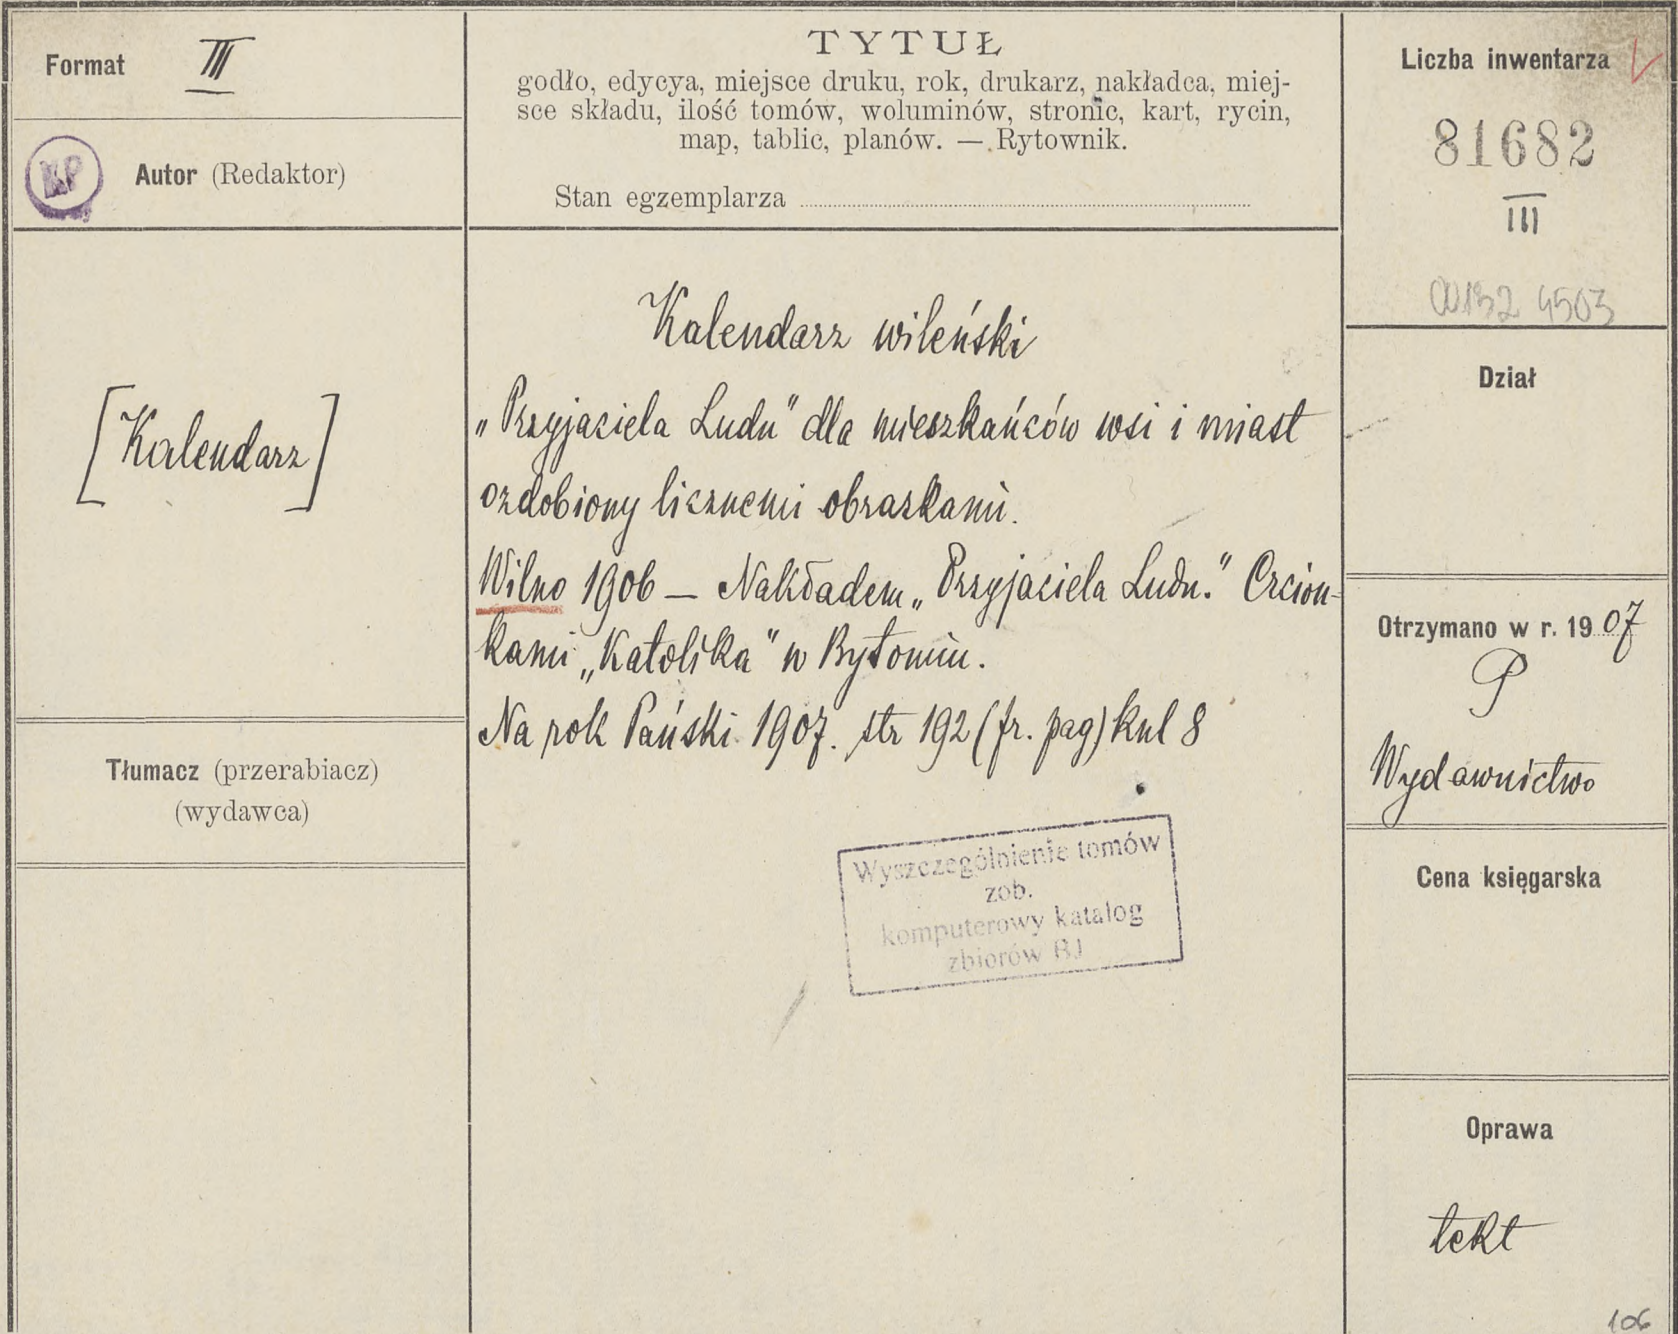 Format III
KP
Autor (Redaktor)
[Kalendarz]
Tłumacz (przerabiacz)
(wydawca)
TYTUŁ
godło, edycya, miejsce druku, rok, drukarz, nakładca, miej-
sce składu, ilość tomów, woluminów, stronic, kart, rycin,
map, tablic, planów. — Rytownik.
Stan egzemplarza
Kalendarz wileński
„Przyjaciela Ludu" dla mieszkańców wsi i miast
ozdobiony licznemi obrazkami.
Wilno 1906 — Nakładem „Przyjaciela Ludu." Czcion-
kami „Katolika" w Bytomiu.
Na rok Pański 1907. str 192 (fr. pag) knl 8
Wyszczególnienie tomów
zob.
komputerowy katalog
zbiorów BJ
Liczba inwentarza
81682
III
00132 4503
Dział
Otrzymano w r. 1907
P
Wydawnictwo
Cena księgarska
Oprawa
tekt
106